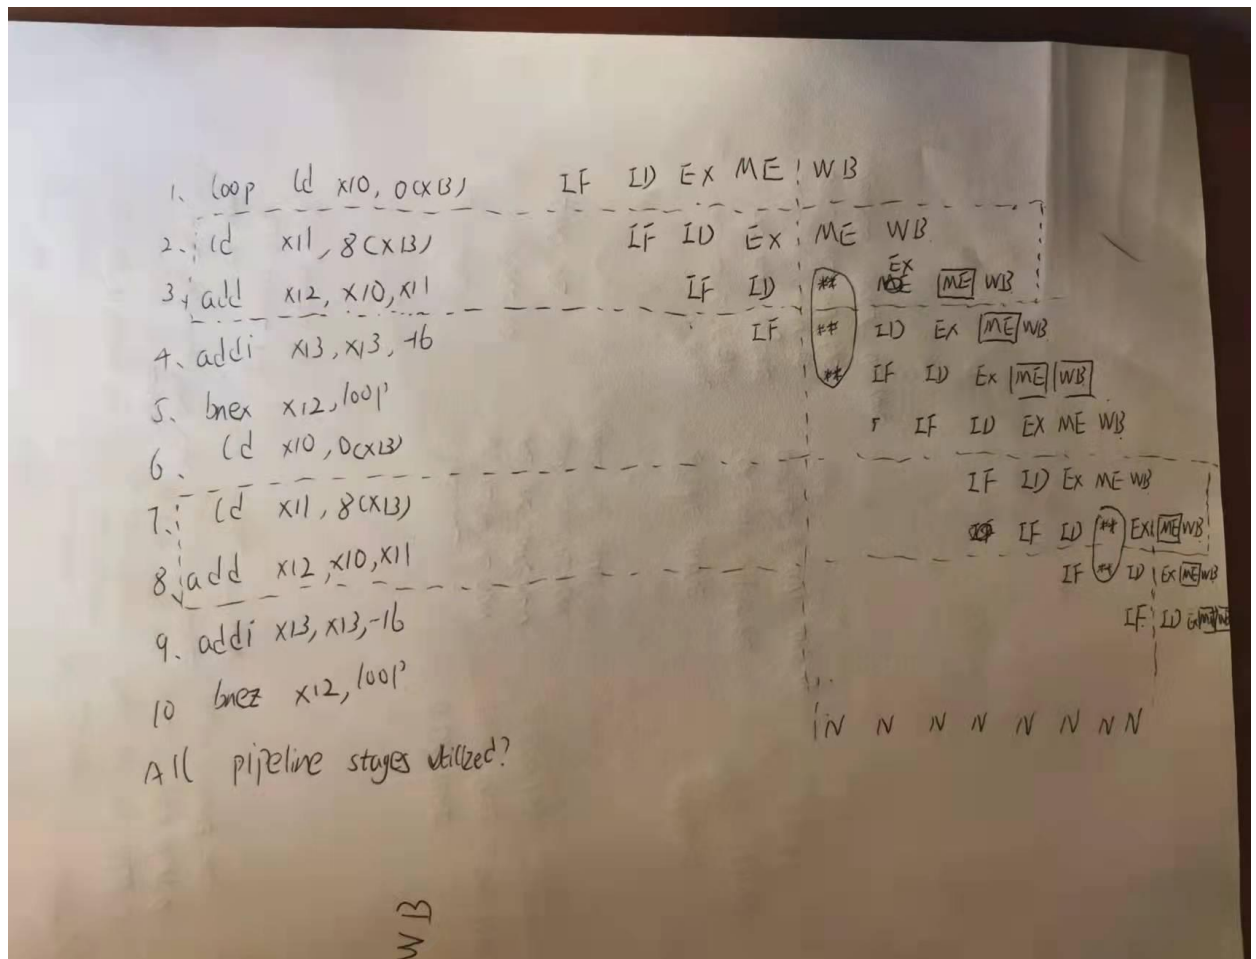 1. loop ld x10, 0(x13) IF ID EX ME WB
2. ld x11, 8(x13) IF ID EX ME WB
3. add x12, x10, x11 IF ID ** EX ME WB
4. addi x13, x13, -16 IF ** ID EX ME WB
5. bnex x12, loop ** IF ID EX ME WB
6. ld x10, 0(x13) IF ID EX ME WB
7. ld x11, 8(x13) IF ID EX ME WB
8. add x12, x10, x11 IF ID ** EX ME WB
9. addi x13, x13, -16 IF ** ID EX ME WB
10 bnez x12, loop IF ID EX ME WB
N N N N N N N N
All pipeline stages utilized?
WB